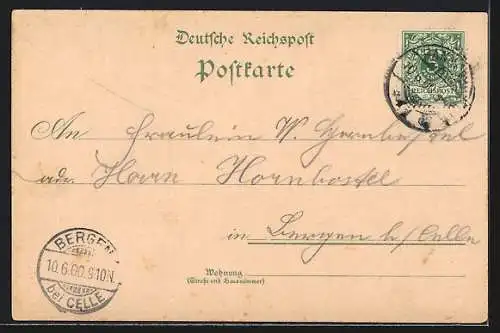 Deutsche Reichspost
Postkarte
5
REICHSPOST
An Fräulein W. Hornbostel
adr. Herrn Hornbostel
in Bergen b/Celle
BERGEN
10.6.00.9-10N.
bei CELLE
Wohnung
(Straße und Hausnummer)